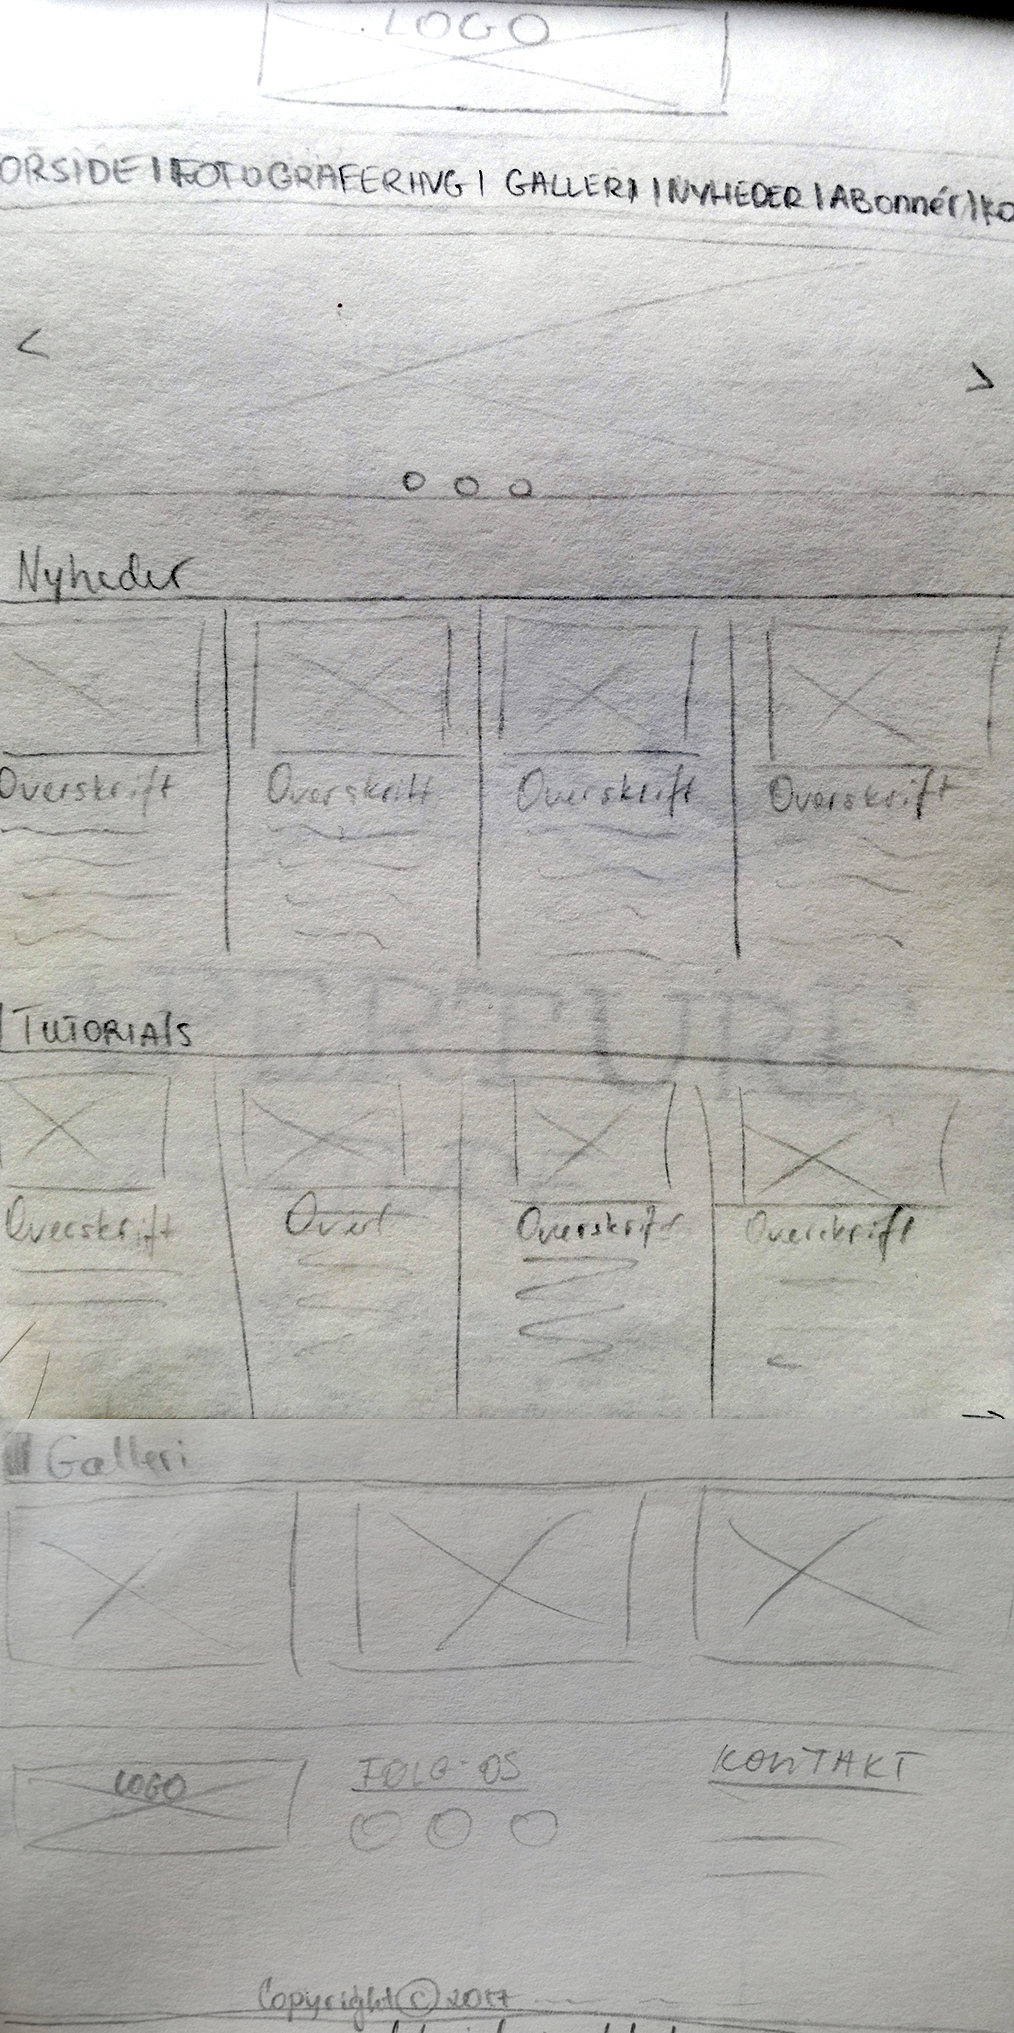 LOGO
ORSIDE | FOTOGRAFERING | GALLERI | NYHEDER | ABonnér | KO
< >
Nyheder
Overskrift Overskrift Overskrift Overskrift
TUTORIAlS
Overskrift Over Overskrift Overskrift
Galleri
LOGO FØLG OS KONTAKT
Copyright © 2017